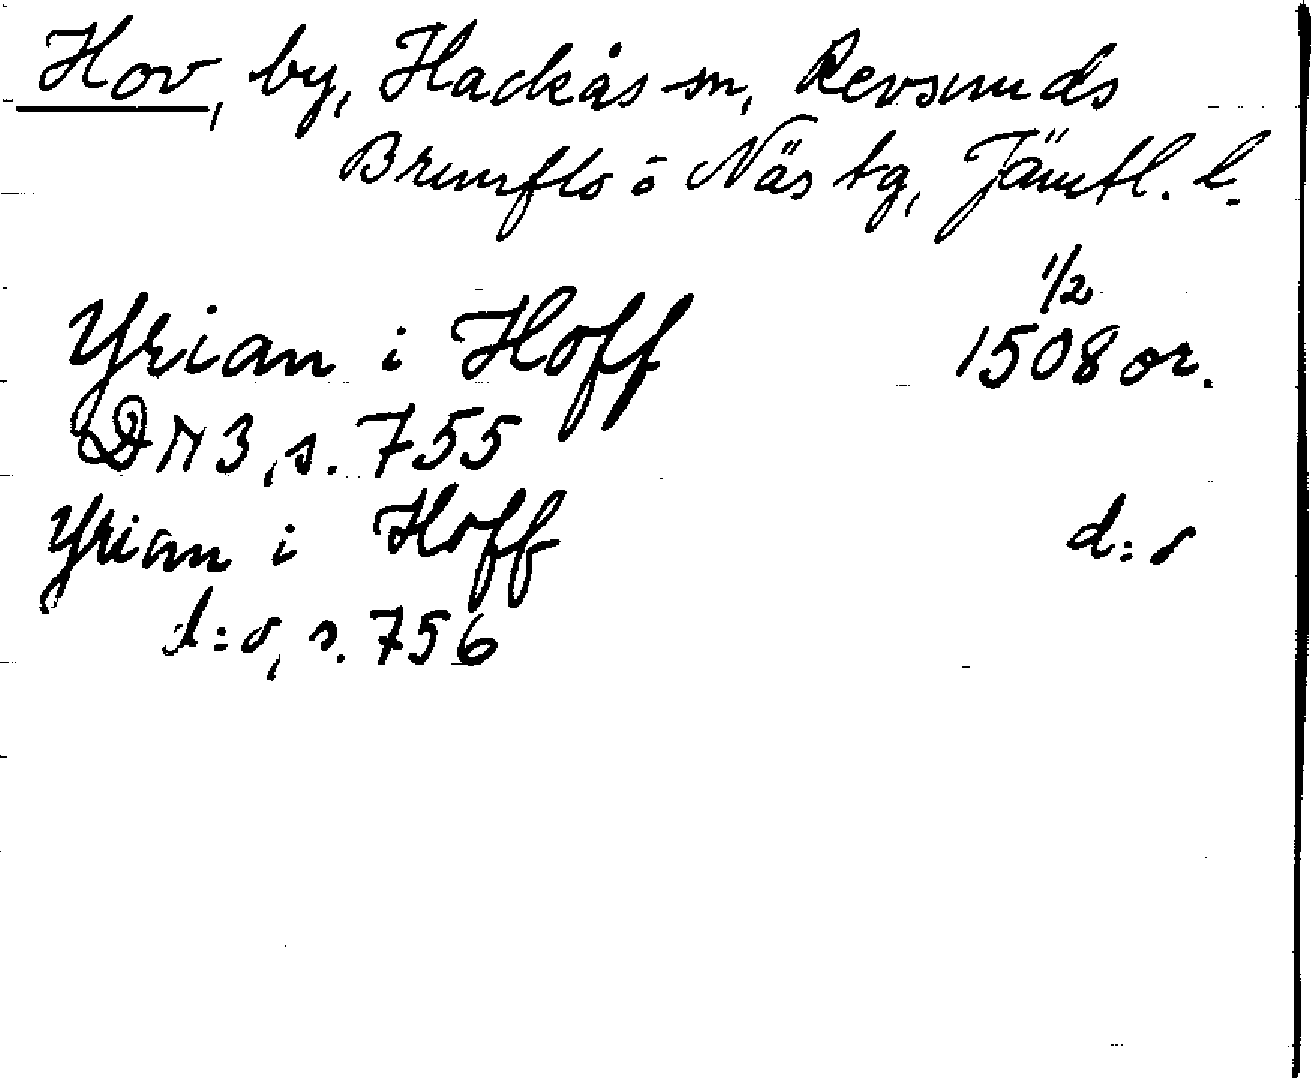 Hov, by, Hackås sn, Revsunds
Brunflo o Näs tg, Jämtl. l.
1/2
Yrian i Hoff 1508 or.
DN 3, s. 755
Yrian i Hoff d:o
d:o, s. 756